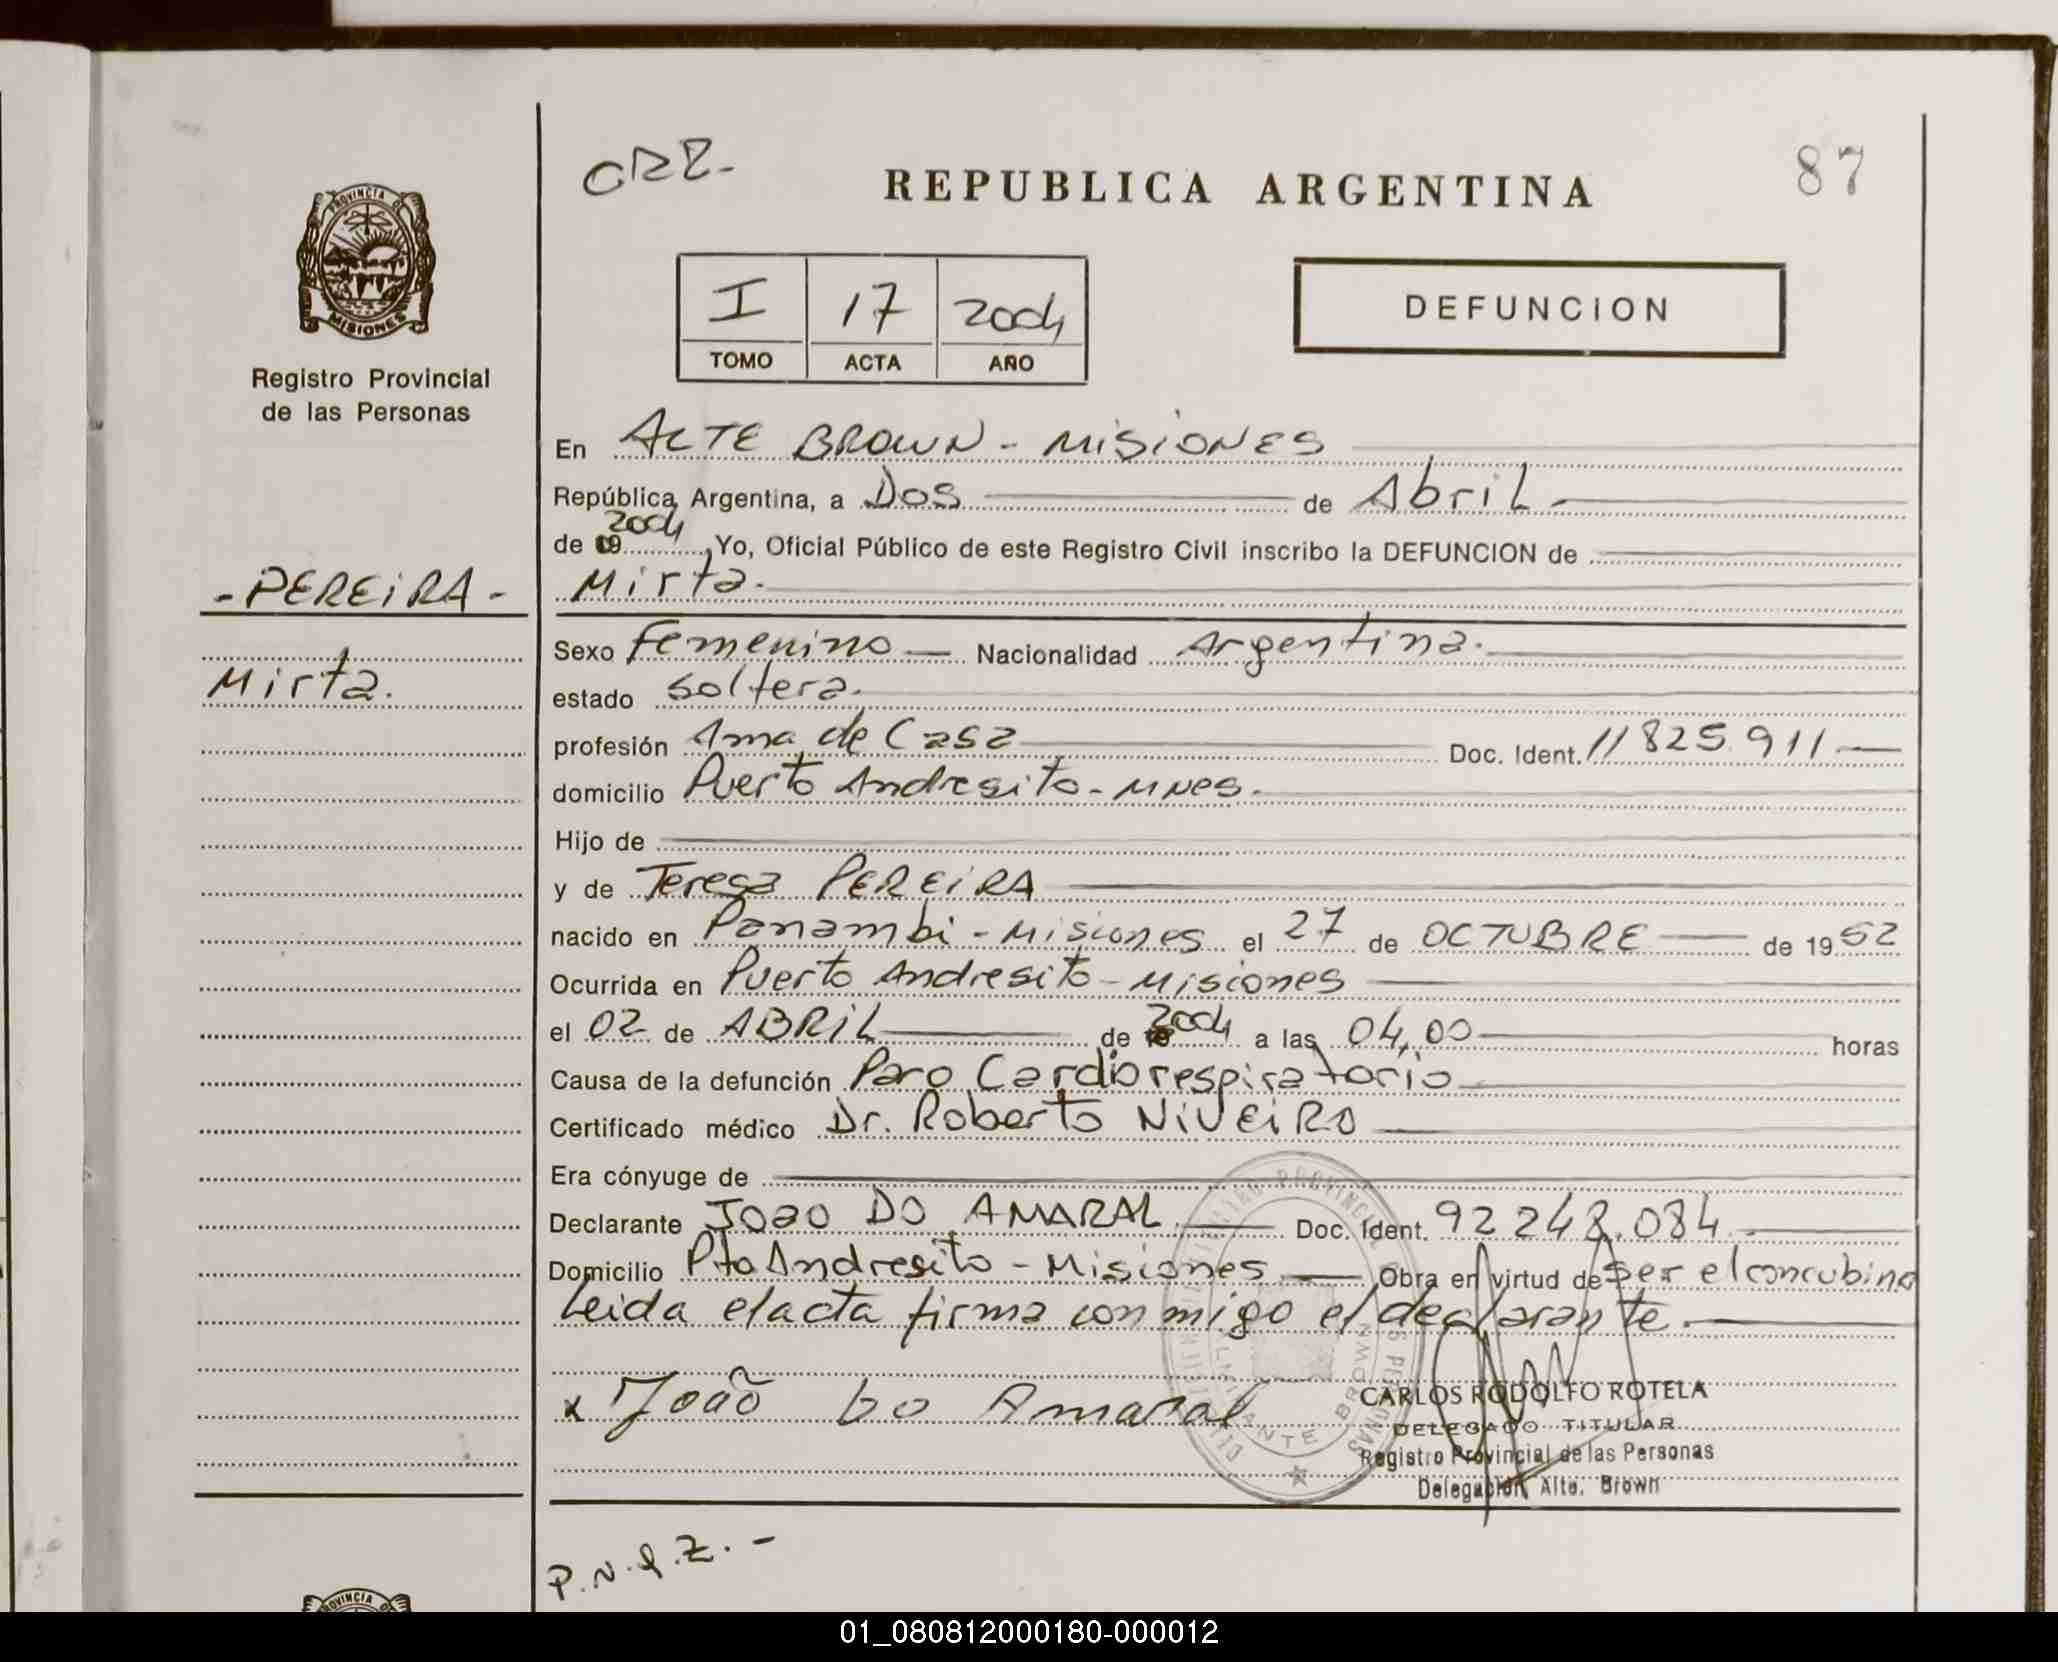 CRR.-
REPUBLICA ARGENTINA
87
PROVINCIA DE
MISIONES
Registro Provincial
de las Personas
I 17 2004
TOMO ACTA AÑO
DEFUNCION
En ALTE BROWN - MISIONES
República Argentina, a Dos de Abril.-
de 19 2004, Yo, Oficial Público de este Registro Civil inscribo la DEFUNCION de
- PEREIRA -
Mirta.
Mirta.-
Sexo Femenino — Nacionalidad Argentina.-
estado soltera.
profesión Ama de Casa Doc. Ident. 11 825.911.-
domicilio Puerto Andresito - MNES.
Hijo de
y de Teresa PEREIRA
nacido en Panambi - Misiones el 27 de OCTUBRE — de 1952
Ocurrida en Puerto Andresito - Misiones
el 02 de ABRIL de 2004 a las 04,00 horas
Causa de la defunción Paro Cardiorespiratorio
Certificado médico Dr. Roberto NIVEIRO
Era cónyuge de
Declarante JOAO DO AMARAL Doc. Ident. 92 248.084
Domicilio Pto Andresito - Misiones — Obra en virtud de ser el concubino
Leida el acta firma conmigo el declarante.
x João do Amaral
CARLOS RODOLFO ROTELA
DELEGADO TITULAR
Registro Provincial de las Personas
Delegación Alte. Brown
PROVINCIA DE
01_080812000180-000012